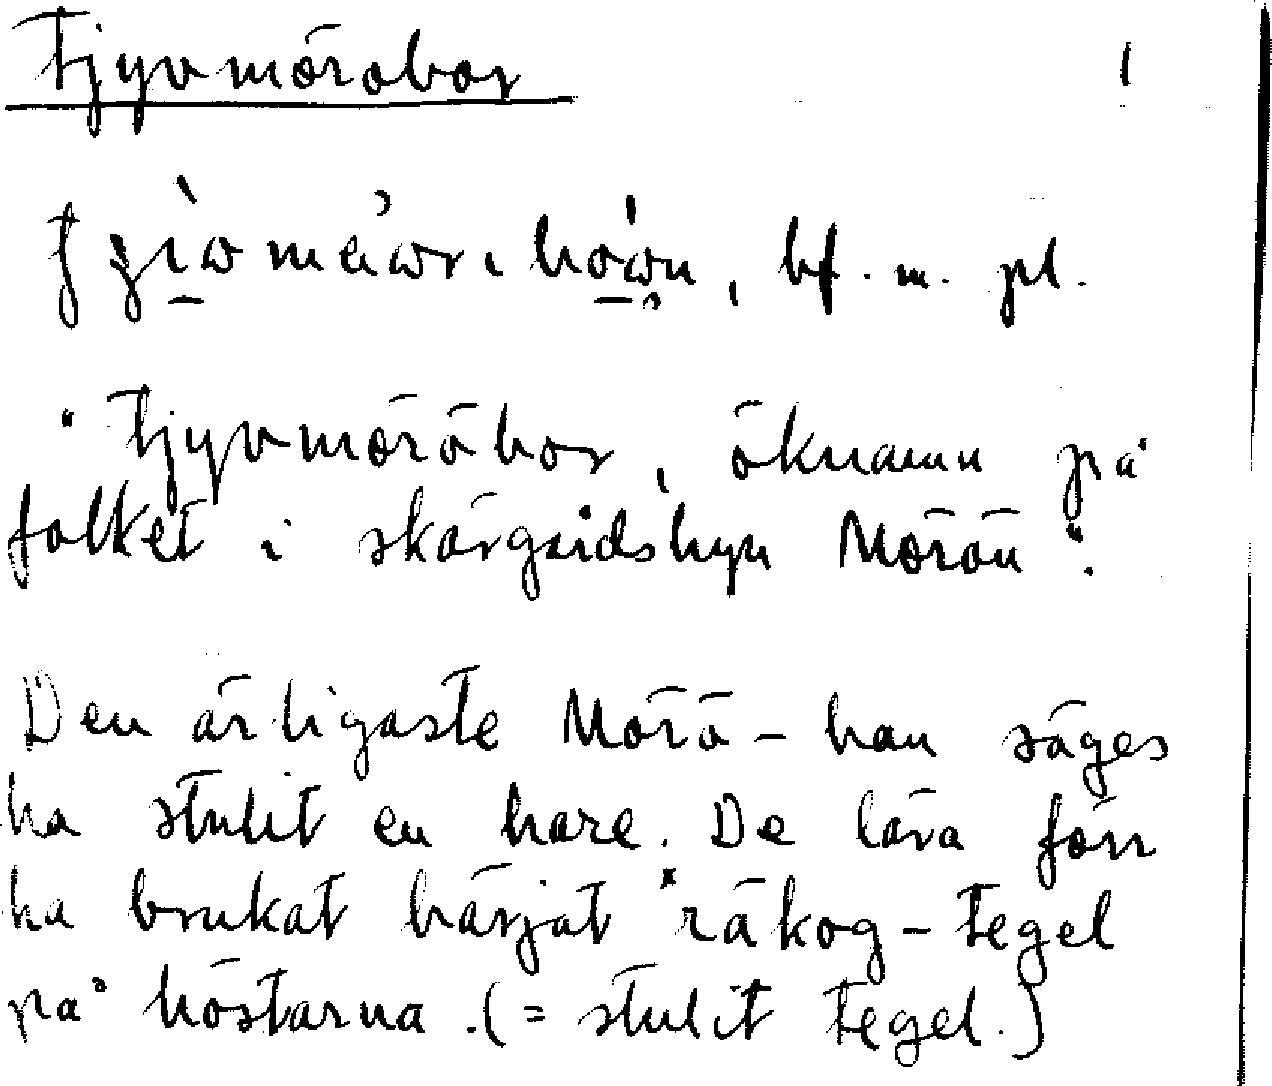 Tjyvmöröbor 1
, bf. m. pl.
"Tjyvmöröbor, öknamn på
folket i skärgårdsbyn Mörön".
Den ärligaste Mörö-ban säges
ha stulit en hare. De lära förr
ha brukat bärjat *räkog-tegel
på höstarna. (= stulit tegel.)